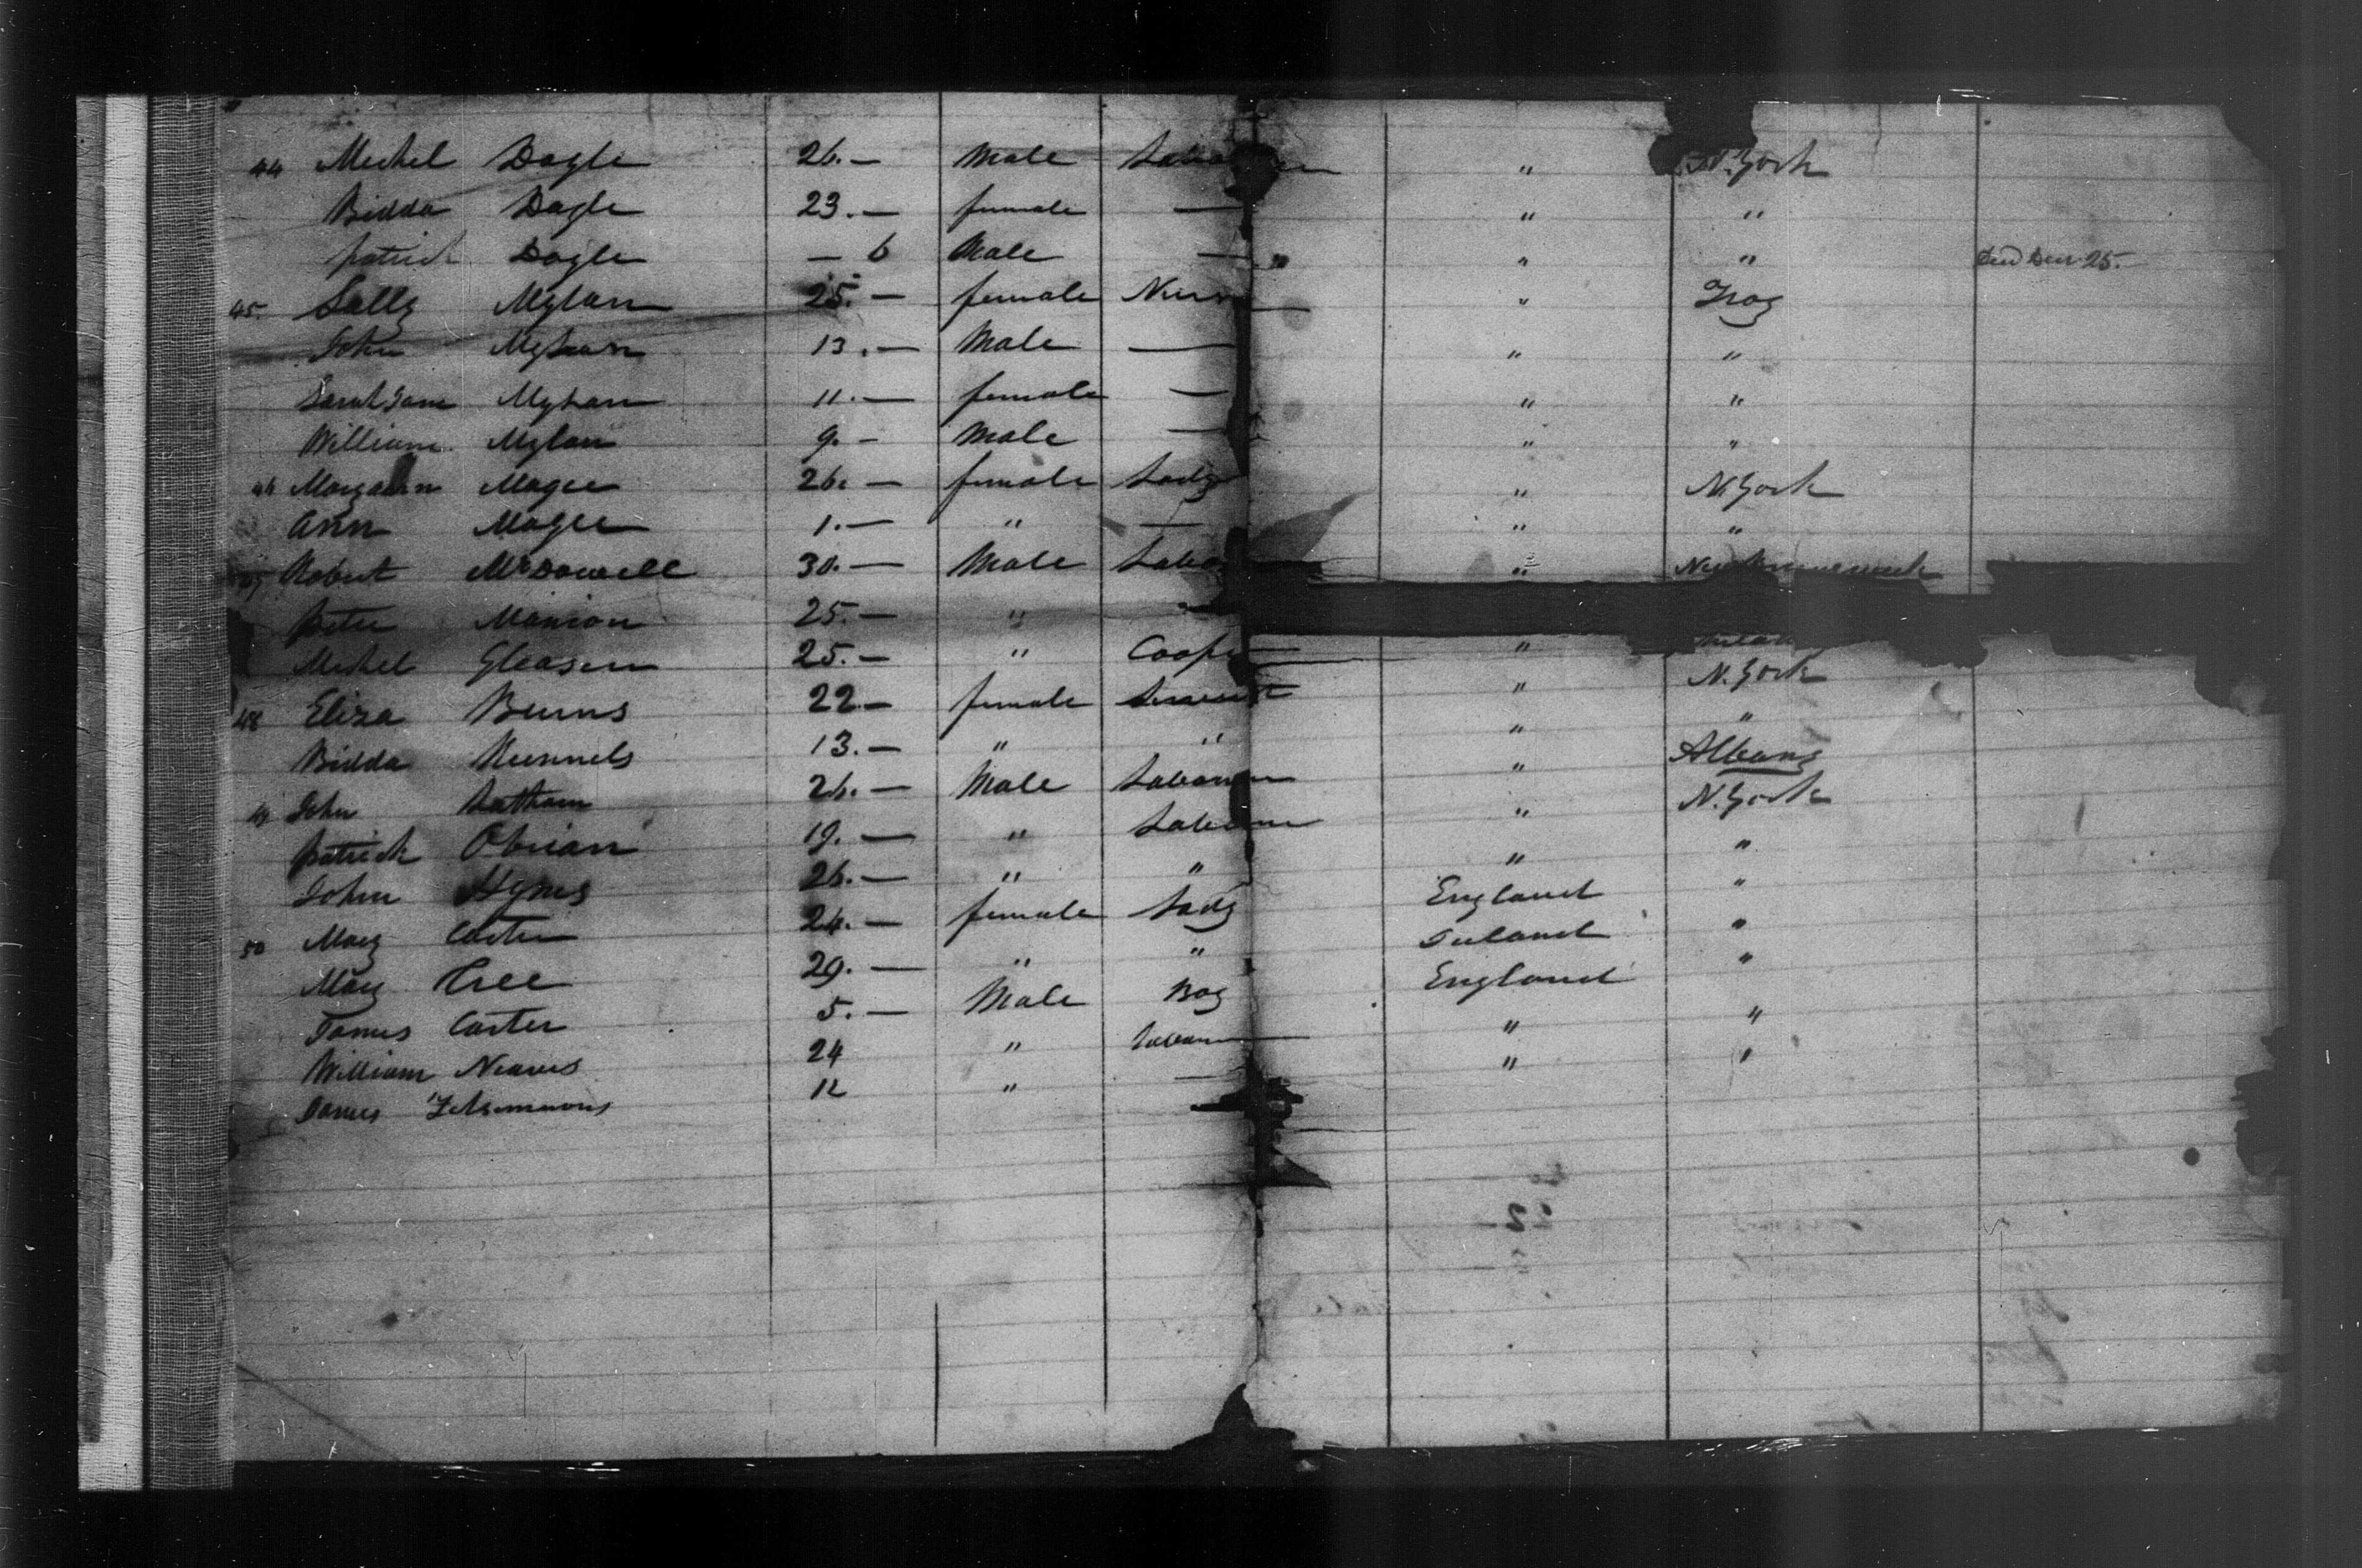 44 Michel Dogle 26. — Male " N. York
Bidda Dogle 23. — female — " "
Patrick Dogle — 6 Male — " " Died Decr 25.
45. Sally Mylan 25. — female Nurse " Troy
John Mylan 13. — Male — " "
Sarah Jane Mylan 11. — female — " "
William Mylan 9. — Male — " "
46 Magee 26. — female Lady " N. York
Ann Magee 1. — " — " "
47 Robert McDowell 30. — Male " New Brunswick
Peter Manion 25. — "
Michel Gleason 25. — " Cooper "
48 Eliza Burns 22 — female Servant " N. York
Bidda 13. — " " " "
49 John Latham 26. — Male Labourer " Albany
Patrick Obrian 19. — " Labourer " N. York
John Hynes 26. — " " " "
50 Mary Carter 24. — female Lady England "
Mary Cree 29. — " " Ireland "
James Carter 5. — Male Boy England "
William Neaves 24 " Labourer " "
James 12 " — " "